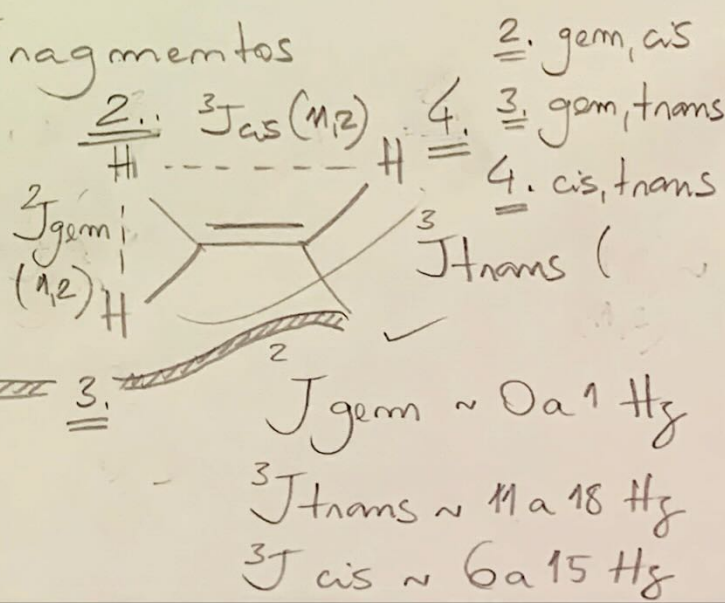 ragmentos
2. gem, cis
2.. ³Jcis(1,2)
4. 3. gem, trans
H H
4. cis, trans
²Jgem
(1,2)
³Jtrans (
H
3.
²Jgem ~ 0 a 1 Hz
³Jtrans ~ 11 a 18 Hz
³J cis ~ 6 a 15 Hz